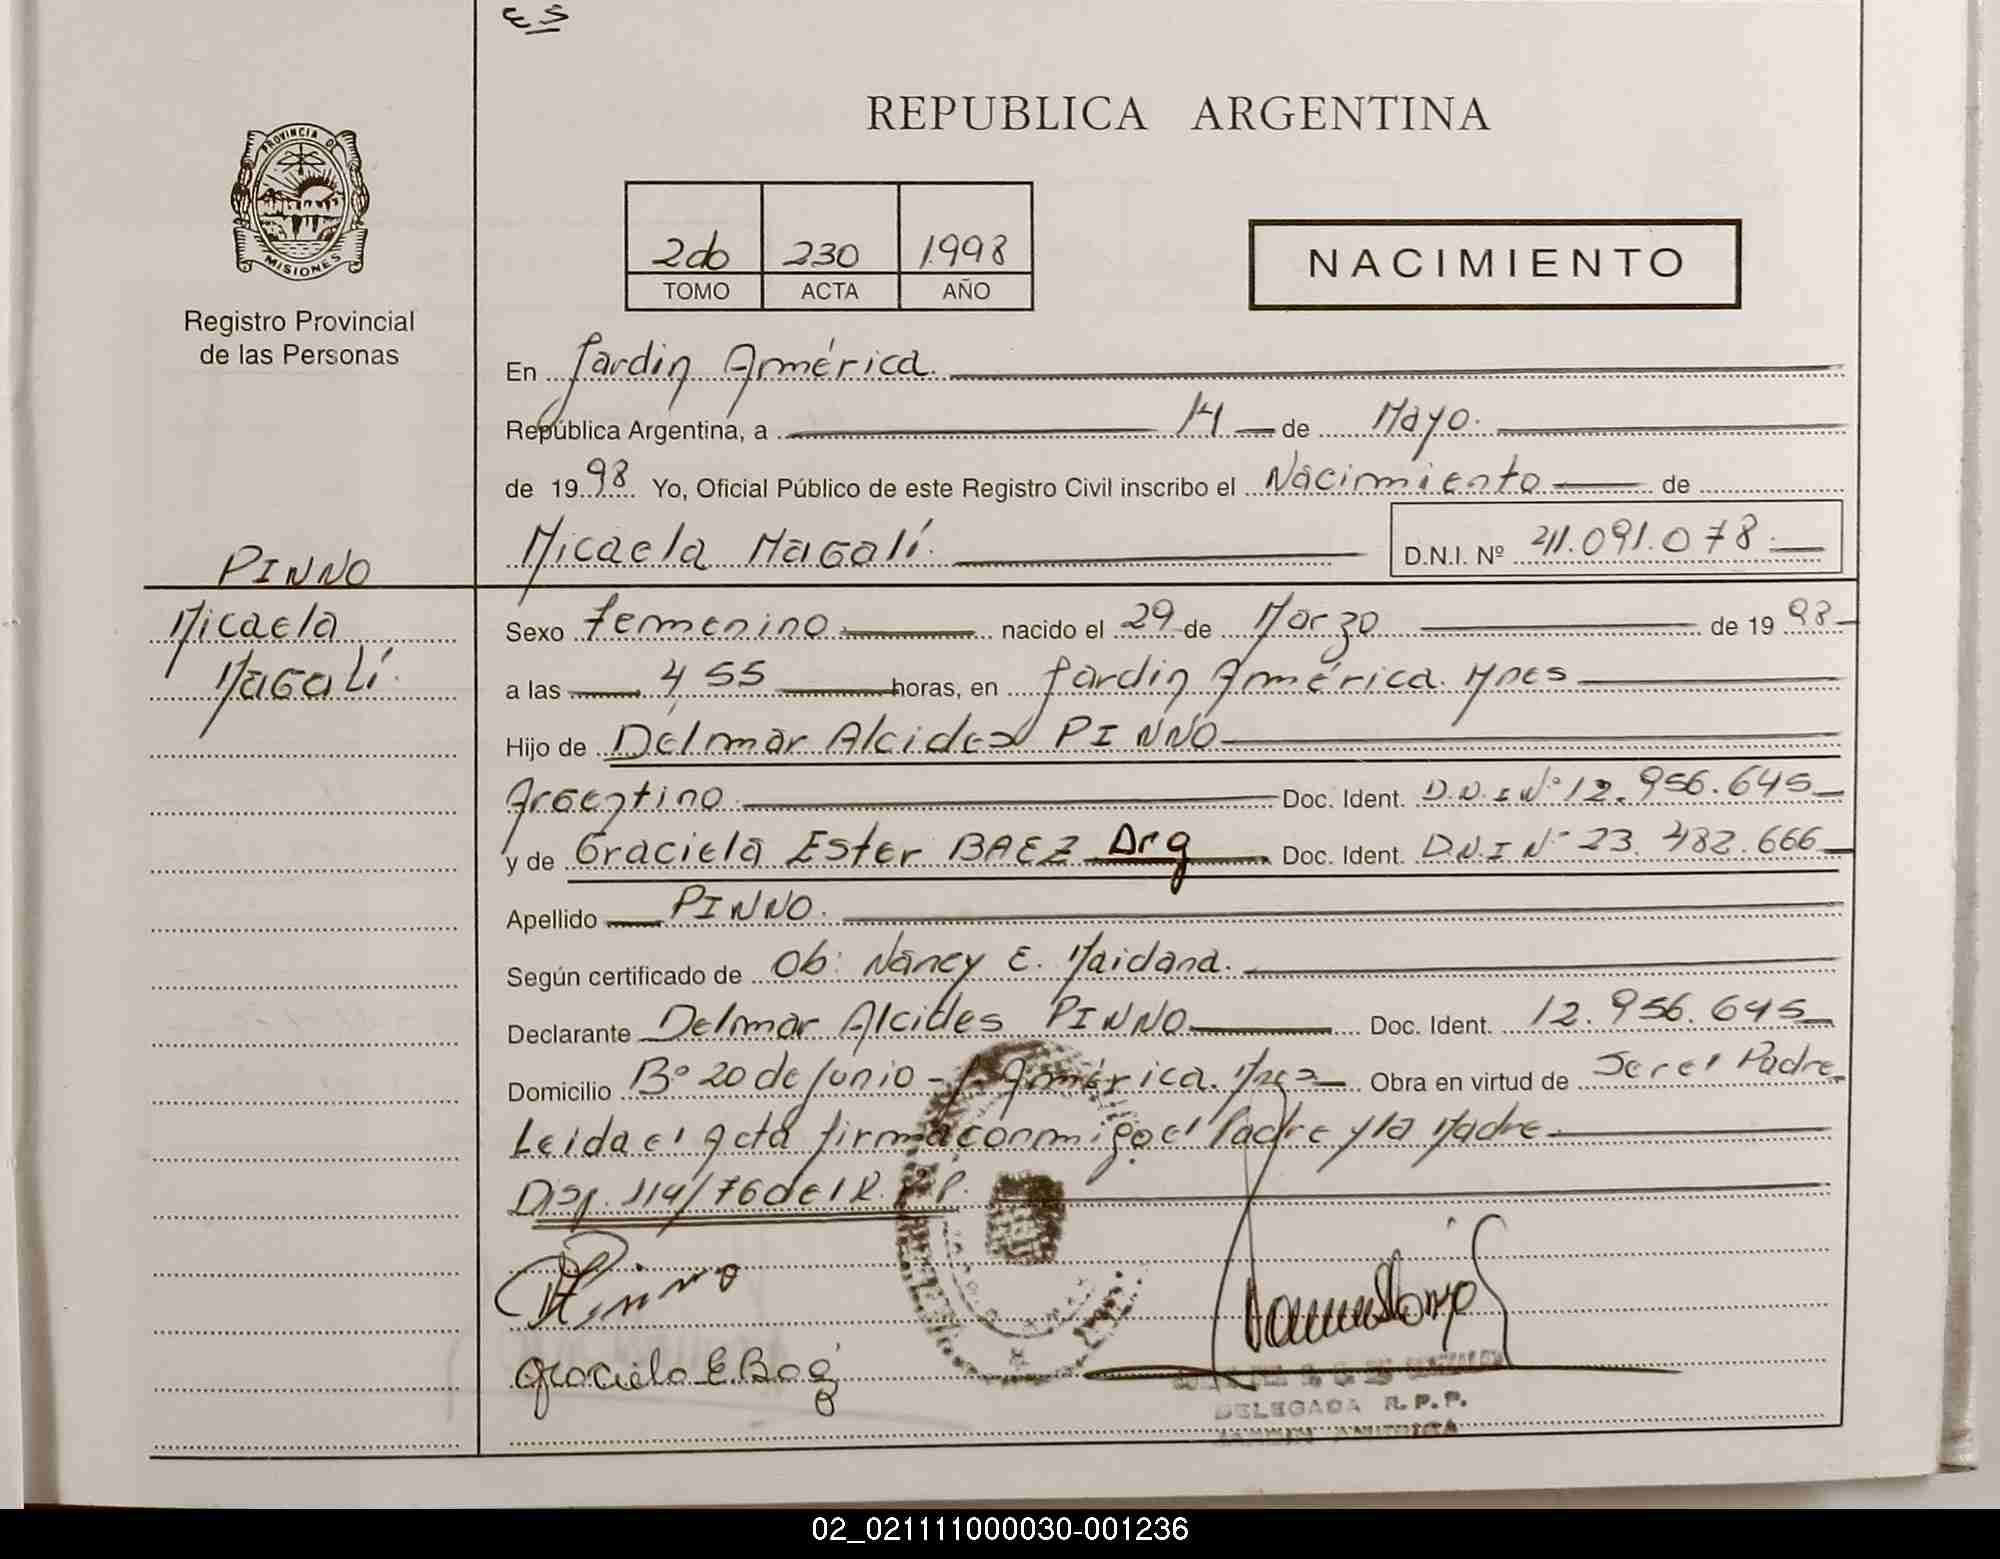 ES
REPUBLICA ARGENTINA
PROVINCIA DE
MISIONES
Registro Provincial
de las Personas
2do 230 1998
TOMO ACTA AÑO
NACIMIENTO
En Jardin América.
República Argentina, a 14 de Mayo.
de 1998. Yo, Oficial Público de este Registro Civil inscribo el Nacimiento de
Micaela Magalí. D.N.I. Nº 41.091.078.
PINNO
Micaela
Magalí.
Sexo Femenino nacido el 29 de Marzo de 1998
a las 4,55 horas, en Jardin América. Mnes
Hijo de Delmar Alcides PINNO
Argentino. Doc. Ident. D.N.I Nº 12.956.645
y de Graciela Ester BAEZ Arg Doc. Ident. D.N.I Nº 23.482.666
Apellido PINNO.
Según certificado de Ob: Nancy E. Maidana.
Declarante Delmar Alcides PINNO Doc. Ident. 12.956.645
Domicilio Bº 20 de Junio - J. América. Mnes Obra en virtud de Ser el Padre
Leida el Acta firma conmigo el Padre y la Madre
Disp. 114/76 del R.P.P.
Pinno
Graciela E Baez
DELEGADA R.P.P.
JARDIN AMERICA
02_021111000030-001236